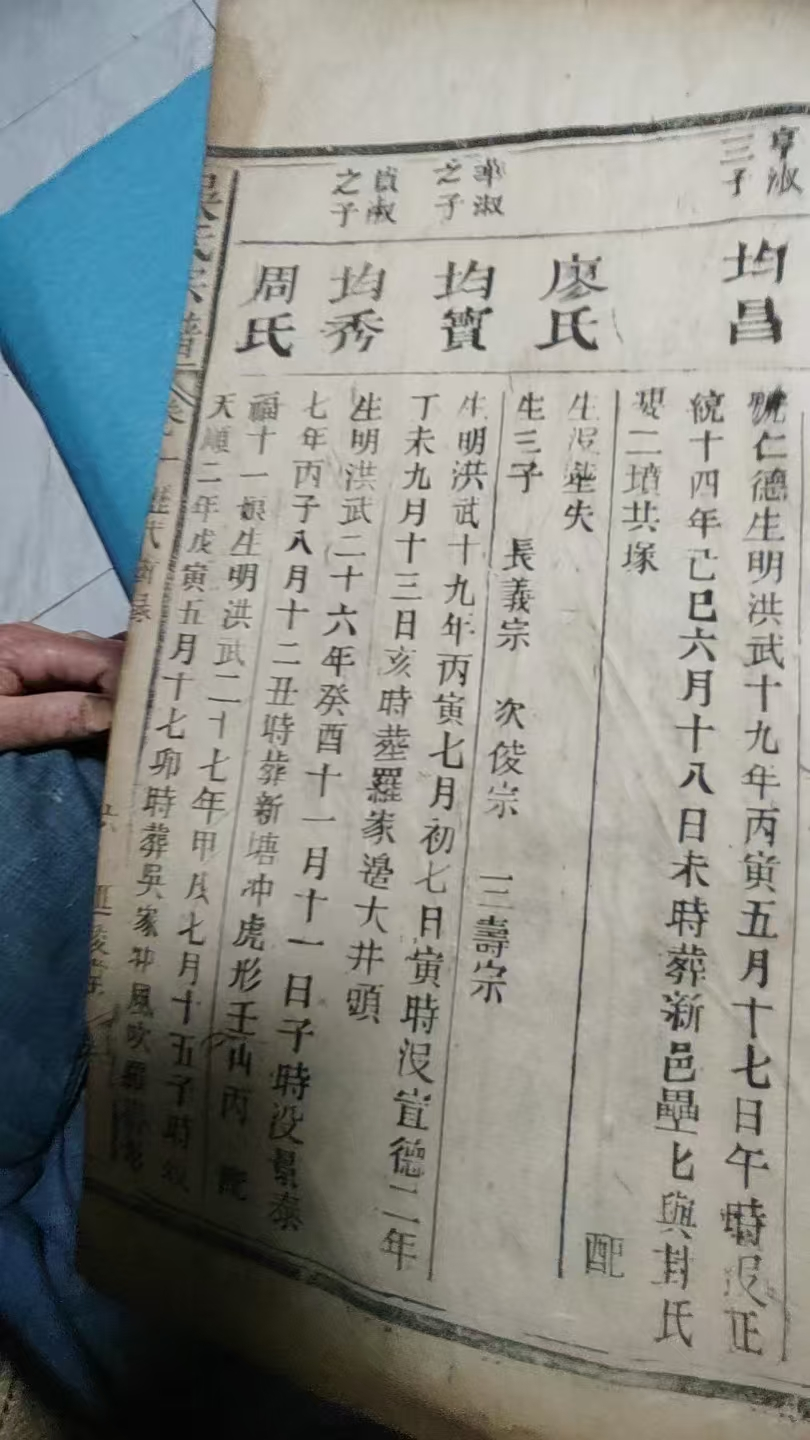 亨淑
三子
均昌
號仁德生明洪武十九年丙寅五月十七日午時没正
統十四年己巳六月十八日未時葬新邑壘匕與封氏
二墳共塚
配
廖氏
生没塟失
生三子 長義宗 次俊宗 三壽宗
華淑
之子
均寶
生明洪武十九年丙寅七月初七日寅時没宣德二年
丁未九月十三日亥時塟羅家邊大井頭
貞淑
之子
均秀
生明洪武二十六年癸酉十一月十一日子時没景泰
七年丙子八月十二丑時葬新塘冲虎形壬山丙 配
周氏
福十一娘生明洪武二十七年甲戌七月十五子時没
天順二年戊寅五月十七卯時葬吳家冲風吹
吳氏宗譜
卷
歷代